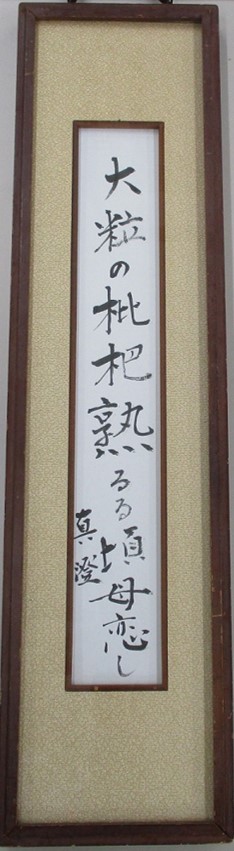 大粒の枇杷熟るる頃母恋し
真澄